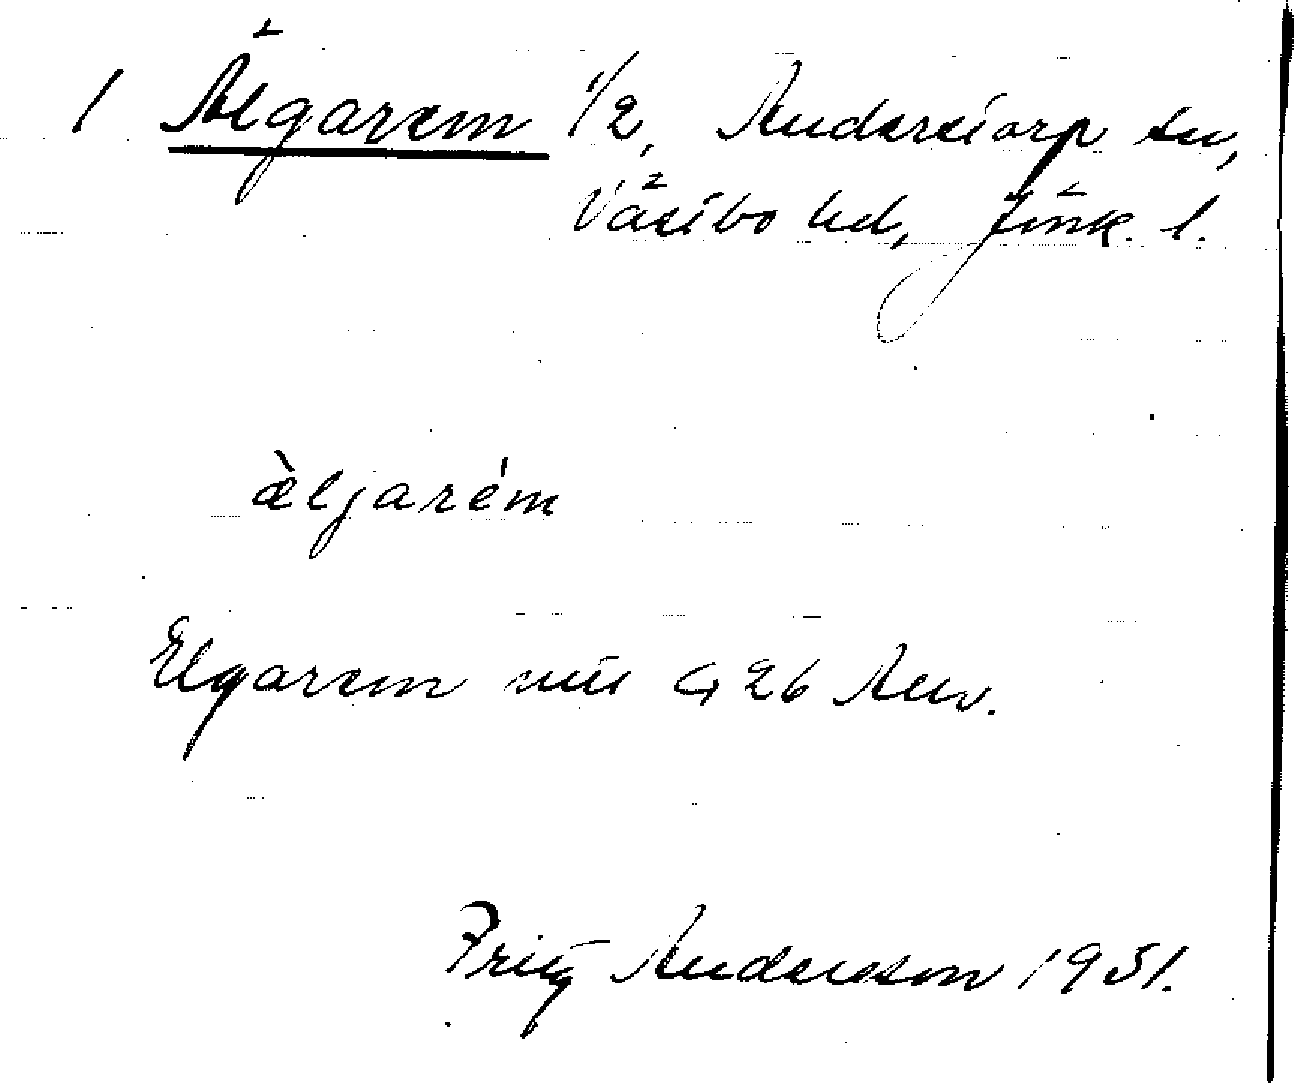 1 Älgarem 1/2, Anderstorp sn,
Västbo hd, Jönk. l.
æ̀ljarém
Elgarem 426 Anv.
Fritz Andersson 1951.